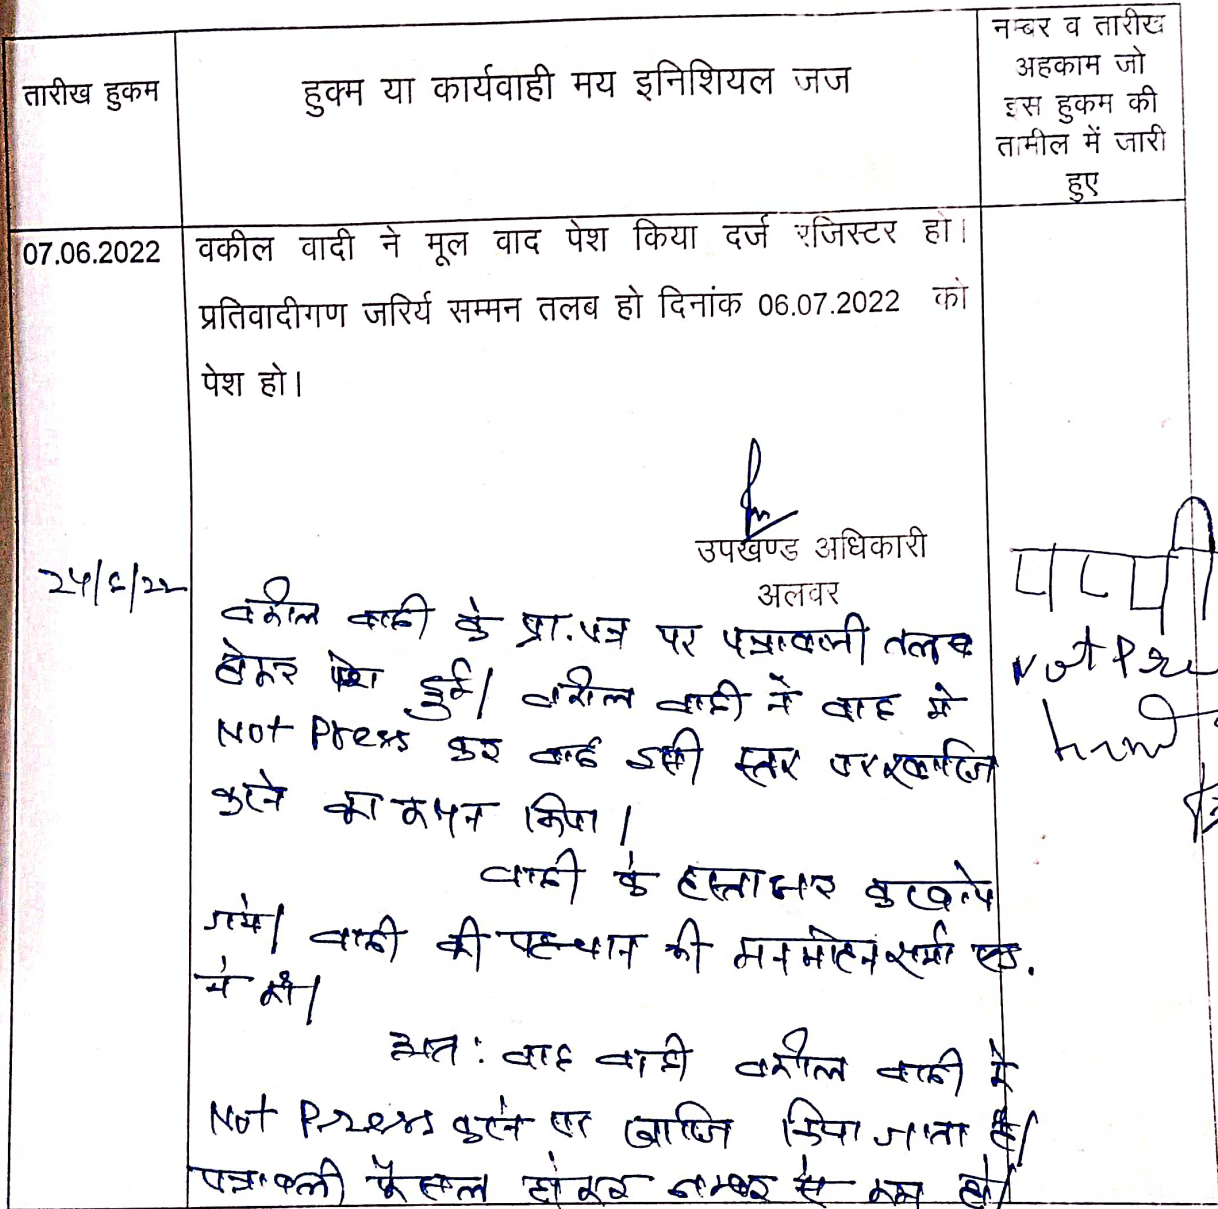 तारीख हुकम
हुक्म या कार्यवाही मय इनिशियल जज
नम्बर व तारीख
अहकाम जो
इस हुकम की
तामील में जारी
हुए
07.06.2022
वकील वादी ने मूल वाद पेश किया दर्ज रजिस्टर हो।
प्रतिवादीगण जरिये सम्मन तलब हो दिनांक 06.07.2022 को
पेश हो।
उपखण्ड अधिकारी
अलवर
वकील वादी के प्रा.पत्र पर पत्रावली तलब
होकर पेश हुई। वकील वादी ने वाद में
Not Press कर वाद इसी स्तर पर खारिज
करने का कथन किया।
वादी के हस्ताक्षर
गये। वादी की पहचान की मनमोहन शर्मा एड.
ने की।
अतः वाद वादी वकील वादी के
Not Press करने पर खारिज किया जाता है।
पत्रावली फैसल होकर नम्बर से कम हो।
Not